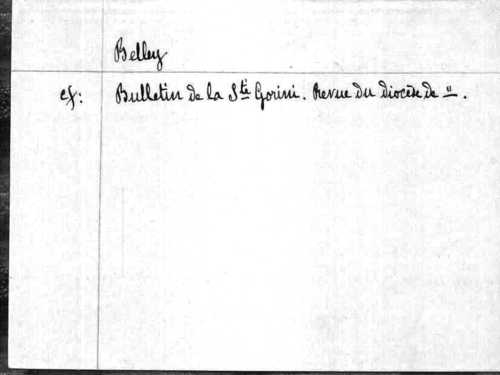 Belley
cf: Bulletin de la Sté Gorini. Revue du diocèse de ".